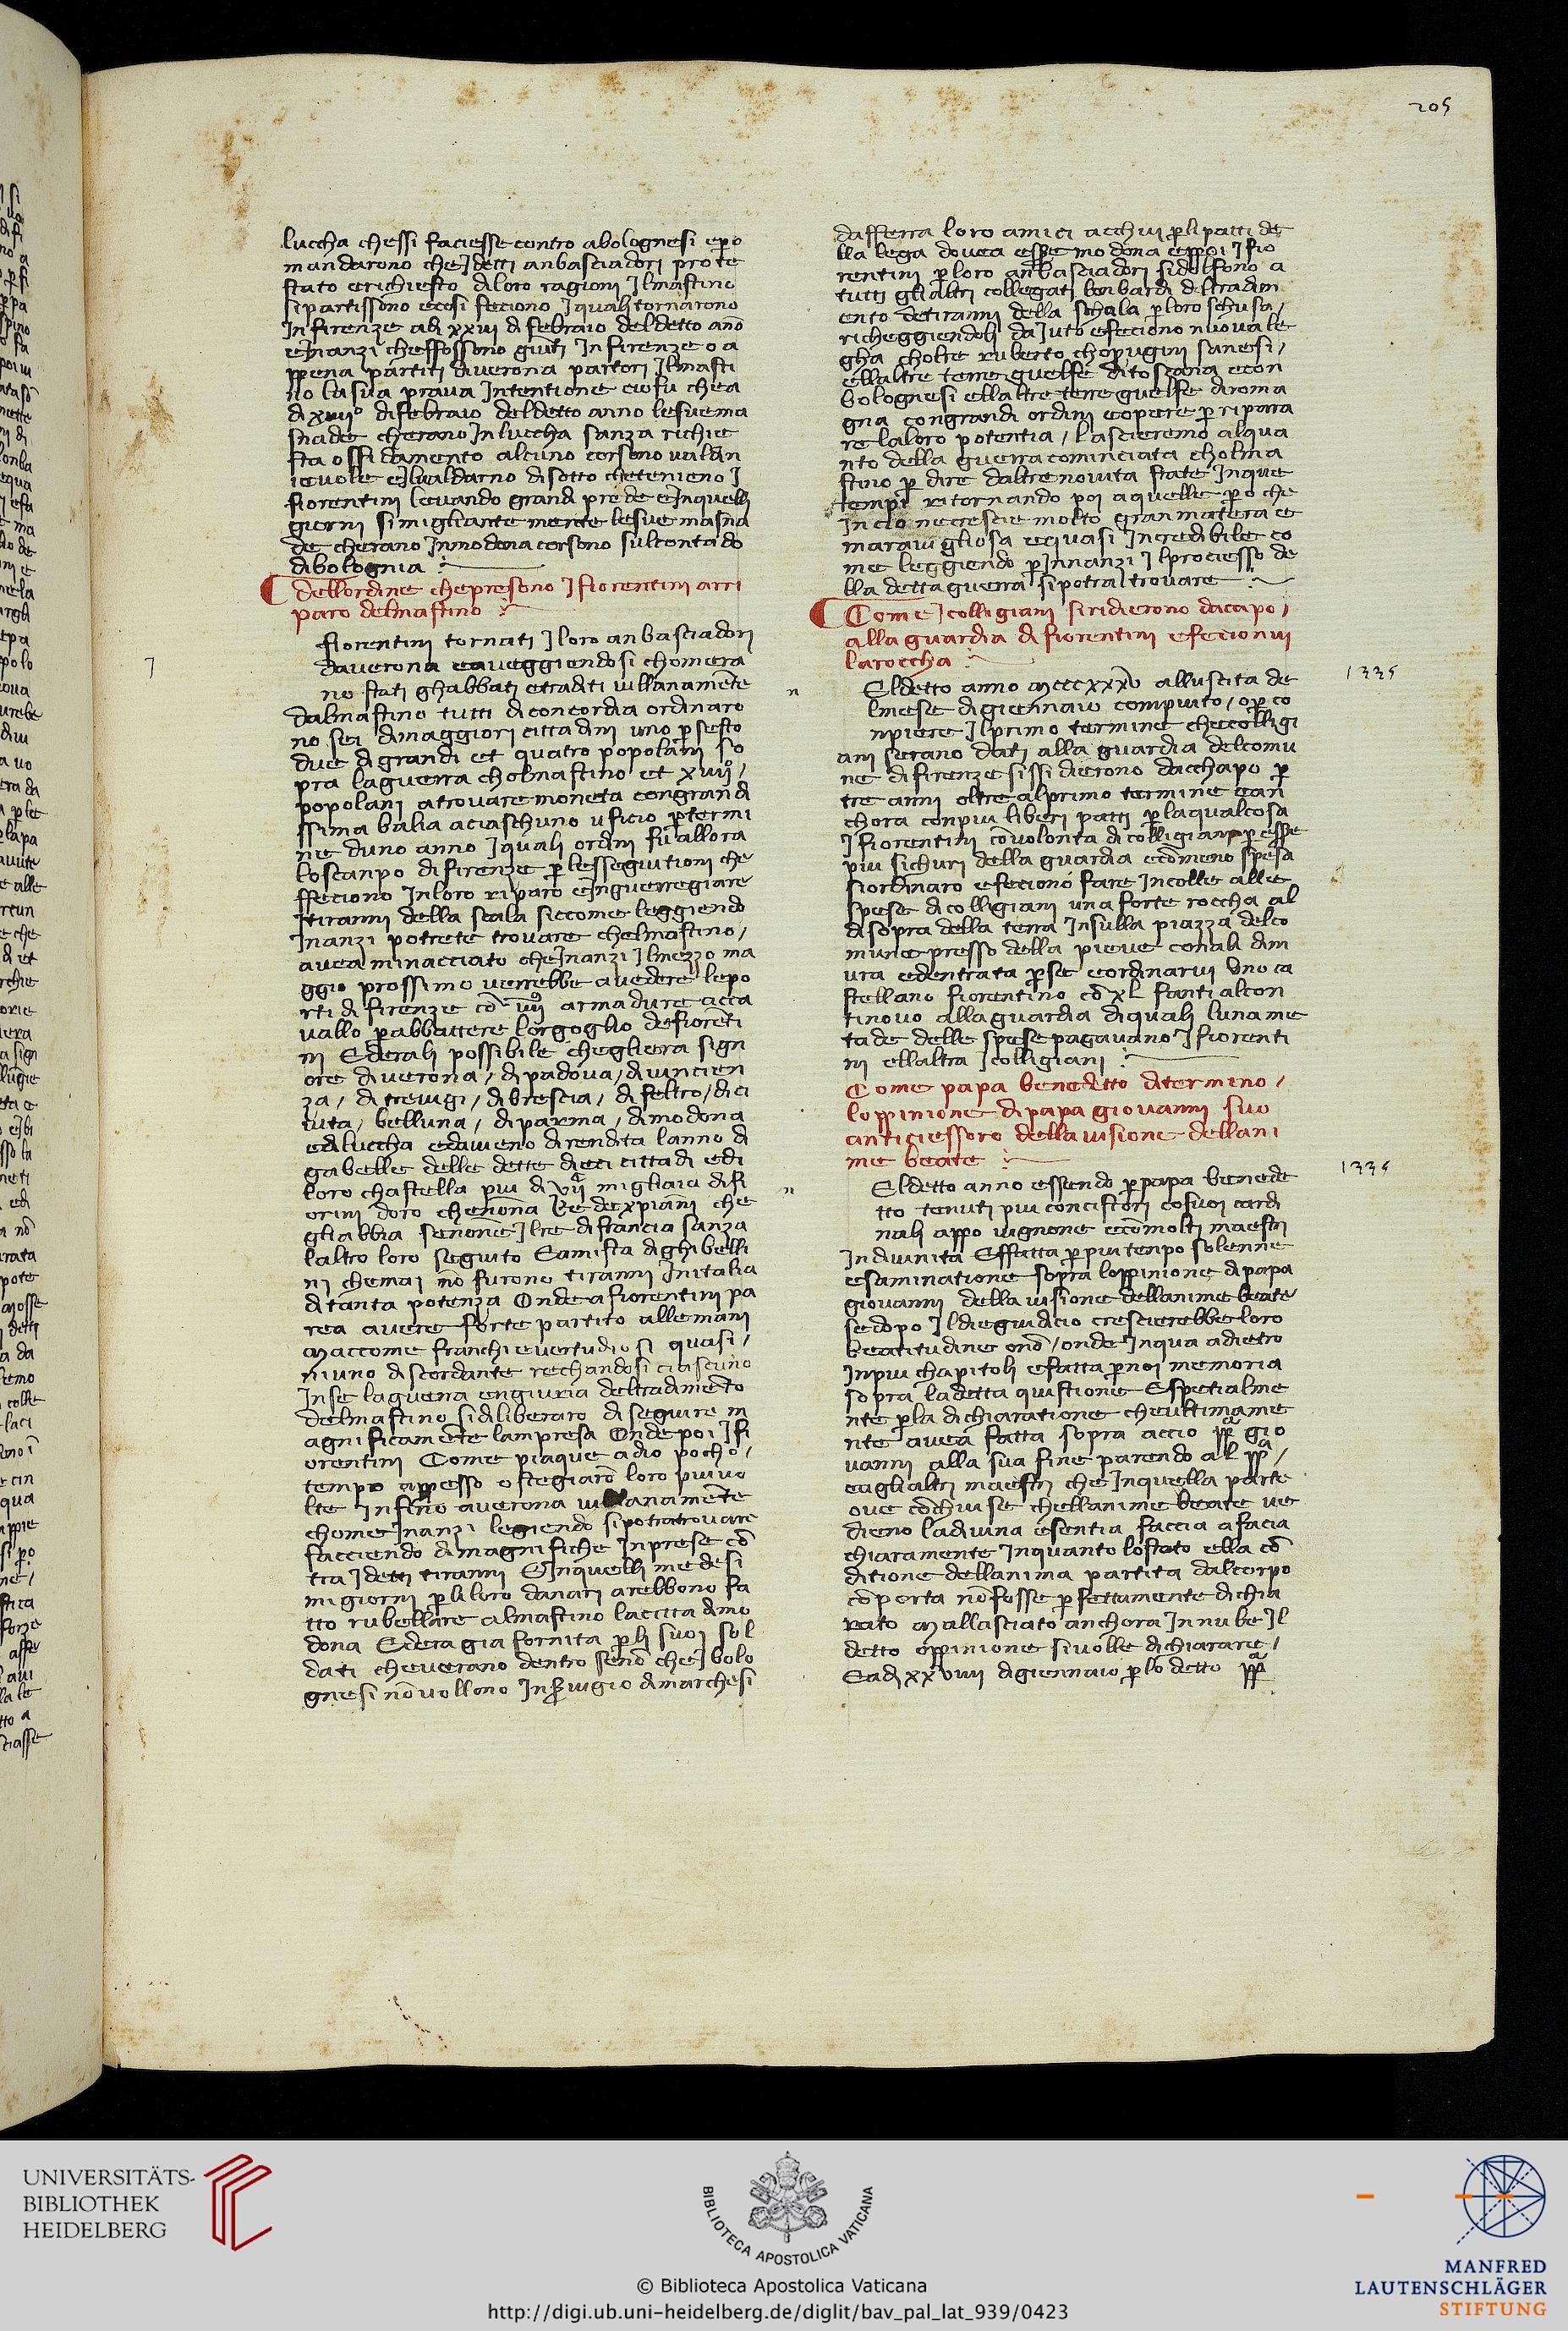 205
luccha chessi faciesse contro abolognesi epero
mandarono cheJ detti anbasciadori prote
stato erichiesto diloro ragioni Jlmastino
sipartissino ecosi feciono Jquali tornarono
Jn firenze adi xxiiii di febraio deldetto anno
eJnanzi cheffossono giunti Jn firenze o a
ppena partiti diverona partori Jlmasti
no la sua prava Jntentione cio fu che a
di xviiii° di febraio deldetto anno lesue ma
snade cherano Jnluccha sanza richie
sta o ssidamento alcuno corsono valdin
ievole eJlvaldarno disotto chetenieno J
fiorentini levando grandi prede eJnquelli
giorni simigliante mente lesue masna
de cherano Jnmodona corsono sulcontado
dibolognia
dellordine chepresono Jfiorentini arri
paro delmastino
fiorentini tornati Jloro anbasciadori
J daverona eaveggiendosi chomera
no stati ghabbati etraditi villanamente
dalmastino tutti di concordia ordinaro
no sei dimaggiori cittadini uno per sesto
due di grandi et quatro popolani so
pra laguerra cholmastino et xiiii° /
popolani atrovare moneta congrandi
ssima balia aciaschuno uficio pertermi
ne duno anno Jquali ordini fu allora
loscanpo difirenze per lessegiutioni che
ffeciono Jnloro riparo eJnguerregiare
Jtiranni della scala siccome leggiendo
Jnanzi potrete trovare chelmastino /
avea minacciato cheJnanzi Jlmezzo ma
ggio prossimo verrebbe avedere lepo
rti di firenze con iiii° armadure acca
vallo per abbattere lorgoglio defiorenti
ni Ederali possibile chegliera sign
ore diverona / di padova / divincien
za / di trevigi / dibrescia / di feltro / di ci
vita / belluna / di parma / dimodona
edi luccha edavieno direndita lanno di
gabelle delle dette dieci cittadi edi
loro chastella piu di vii migliaia difi
orini doro chenona Re de xpiani che
gliabbia senone Jlre difrancia sanza
laltro loro seguito Eamista dighibelli
ni chemai non furono tiranni Jnitalia
di tanta potenza Onde a fiorentini pa
rea avere forte partito allemani
Maccome franchi evertudiosi quasi /
niuno discordante rechandosi ciascuno
Jnse laguerra engiuria deltradimento
delmastino sidiliberaro di seguire m
agnificamente lampresa Onde poi Jfi
orentini Come piaque adio pocho /
tempo appesso osteggiaro loro piu vo
lte Jnfino averona villanamente
chome Jnanzi legiendo sipotratrovare
facciendo dimagnifiche Jnprese con
tra Jdetti tiranni EJnquelli medesi
mi giorni perliloro danari arebbono fa
tto rubellare almastino lacitta dimo
dona Edera gia fornita perli suoi sol
dati cheverano dentro senon cheJbolo
gnesi nonvollono Jnserviigio dimarchesi
dafferra loro amici acchui perlipatti de
lla lega dovea essere modona eppoi Jfio
rentini perloro anbasciadori sidolsono a
tutti glialtri collegati lonbardi deltradim
ento detiranni della schala perloro schusa /
richeggiendoli daJuto efeciono nuova le
gha cholre ruberto choperugini sanesi /
ellaltre terre guelfe di toscana econ
bolognesi ellaltre terre guelfe diroma
gna congrandi ordini eopere per ripara
re laloro potentia / lascieremo alqua
nto della guerra cominciata cholma
stino per dire daltre novita state Jnque
tempi ritornando poi aquelle pero che
Jncio necescie molto gran matera e
maravigliosa equasi Jncredibile co
me leggiendo perJnnanzi Jlprociesso de
lla detta guerra sipotrai trovare
Come Jcolligiani siridierono daccapo /
alla guardia di fiorentini efecionvi
laroccha
1335
n Eldetto anno Mcccxxxv alluscita de
lmese digiennaio compiuto / oper co
npiere Jlprimo termine checolligi
ani sierano dati alla guardia delcomu
ne difirenze sissi dierono dacchapo per
tre anni oltre alprimo termine ean
chora conpiu liberi patti perlaqualcosa
Jfiorentini convolonta di colligiani per essere
piu sichuri della guardia econmeno spesa
siordinaro efeciono fare Jncolle alle
spese dicolligiani una forte roccha al
disopra della terra Jnsulla piazza delco
mune presso della pieve conali dim
ura edentrata perse eordinarvi Uno ca
stellano fiorentino con xL fanti alcon
tinovo allaguardia diquali luname
tade delle spese pagavano Jfiorenti
ni ellaltra Jcolligiani
Come papa benedetto ditermino /
loppinione di papa giovanni suo
anticiessoro dellavisione dellani
me beate
1335
n Eldetto anno essendo per papa benede
tto tenuti piu concistori cosuoi cardi
nali appo vignone econmolti maestri
Jndivinita Effatta perpiu tenpo solenne
esaminatione sopra loppinione di papa
giovanni della visione dellanime beate
sedopo Jldieguidicio crescierebbe loro
beatitudine onon / onde Jnqua adietro
Jnpiu chapitoli efatta pernoi memoria
sopra ladetta quistione Espetialme
nte perla dichiaratione cheultimame
nte avea fatta sopra accio ppa gio
vanni alla sua fine parendo al ppa /
euglialtri maestri cheJnquella parte
ove conchiuse chellanime beate ve
dieno ladivina esentia faccia afacia
chiaramente Jnquanto lostato ella con
ditione dellanima partita dalcorpo
conporta nonfosse perfettamente dichia
rato Mallasciato anchora Jnnube Jl
detto oppinione sivolle dichiarare /
Eadi xxviiii digiennaio perlo detto ppa
UNIVERSITÄTS-
BIBLIOTHEK
HEIDELBERG
BIBLIOTECA APOSTOLICA VATICANA
© Biblioteca Apostolica Vaticana
http://digi.ub.uni-heidelberg.de/diglit/bav_pal_lat_939/0423
MANFRED
LAUTENSCHLÄGER
STIFTUNG